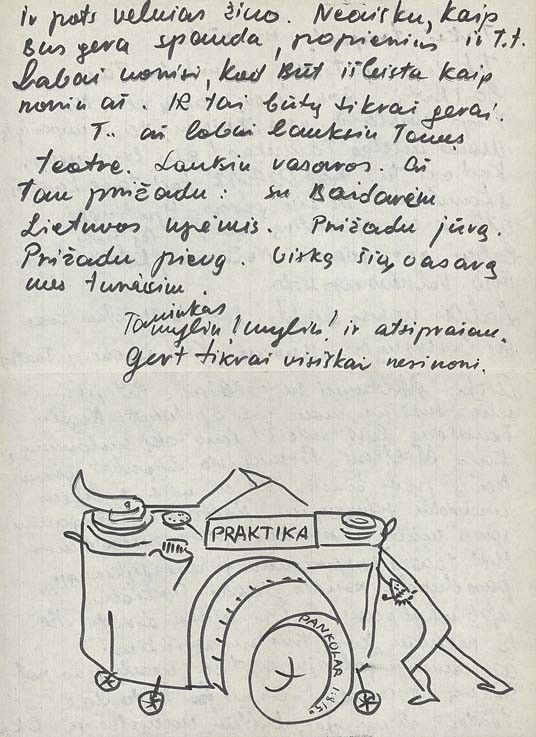 ir pats velnias žino. Neaišku, kaip
Bus gera spauda, popierius ir t.t.
Labai norisi, kad Būt išleista kaip
noriu aš. IR tai būtų tikrai gerai.
T.. aš labai lauksiu Tavęs
teatre. Lauksiu vasaros. Aš
Tau prižadu: su Baidarėm
Lietuvos upėmis. Prižadu jūrą.
Prižadu pievą. Viską šią vasarą
mes turėsim.
Taniukas
myliu! myliu! ir atsiprašau.
Gert tikrai visiškai nesinori.
PRAKTIKA
PANKOLAR 1:8/50